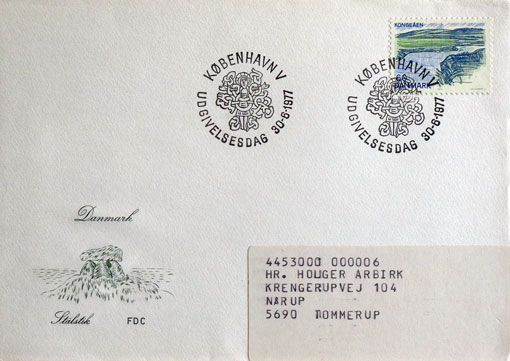 KONGEÅEN
DANMARK
KØBENHAVN V
UDGIVELSESDAG 30-6-1977
KØBENHAVN V
UDGIVELSESDAG 30-6-1977
Danmark
Stålstik FDC
4453000 000006
HR. HOLGER ARBIRK
KRENGERUPVEJ 104
NÅRUP
5690 TOMMERUP